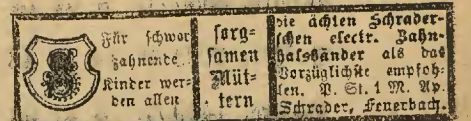 Für schwer
zahnende
Kinder wer-
den allen
sorg-
samen
Müt-
tern
die ächten Schrader-
schen electr. Zahn-
halsbänder als das
Vorzüglichste empfoh-
len. P. St. 1 M. Ap.
Schrader, Feuerbach.